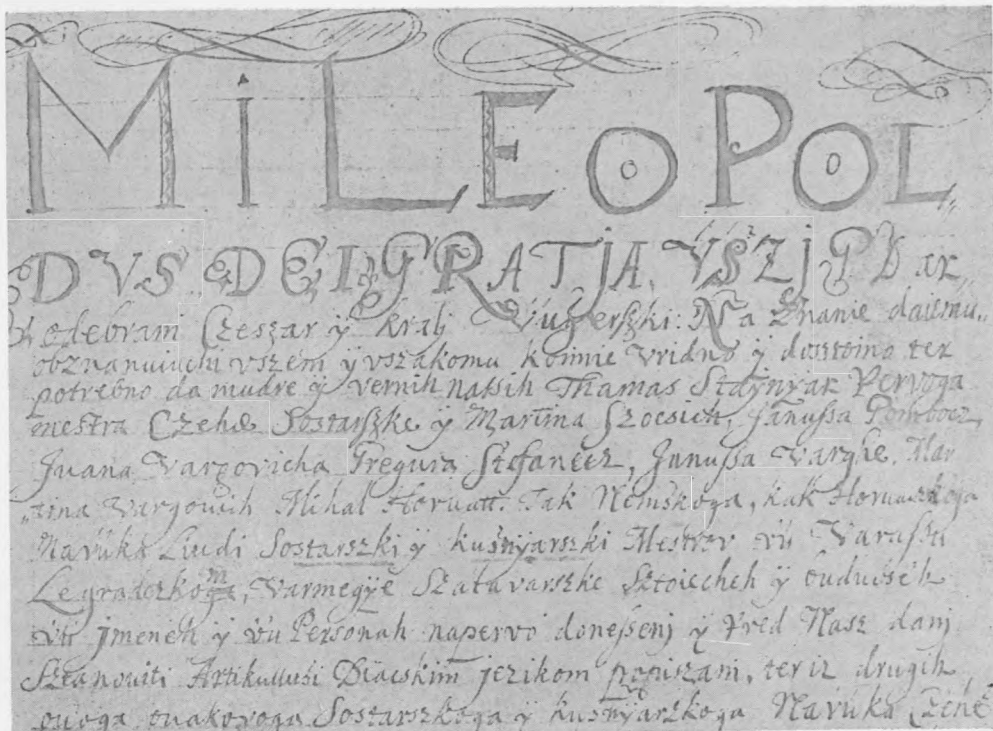 MI LEOPOL„
DVS. DEI GRATJA. VSZJGDAR„
odebrani Czeszar y kralj Vugerszki: Na Znanie daiemu„
obznanuiuchi vszem y vszakomu komue vridno ÿ dosztoino ter
potrebno da mudre ÿ vernih natsih Thamas Pervoga
mestra Czehe Sostarszke ÿ Martina Janussa Pombocz,
Juana Vargovicha Gregura Stefanecz, Janussa Varghe, Mar
„tina Vargovich Mihal Horuatt. Tak Nemskoga, kak Horuaczkoga
Navuka Liudi Sostarszki ÿ kusnÿarszki Mestrov vu Varassu
Legradczkom, Varmegÿe Szalavarszke Sztoiecheh ÿ ouduvseh
vu jmeneh ÿ vu Personah napervo donessenj ÿ Pred Nasz danj
Sztanoviti Artikulussi jezikom popiszani, ter iz drugih
ovoga ovakovoga Sostarszkoga ÿ kusnÿarszkoga Navuka Czehe